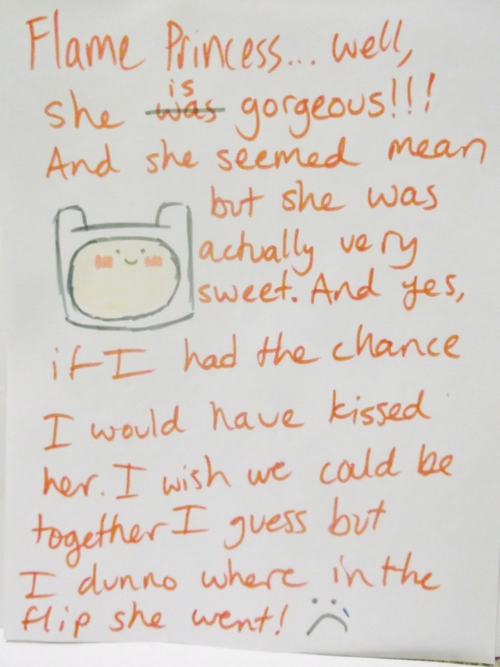 Flame Princess... well,
is
she was gorgeous!!!
And she seemed mean
but she was
actually very
sweet. And yes,
if I had the chance
I would have kissed
her. I wish we could be
together I guess but
I dunno where in the
flip she went!